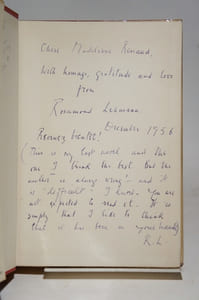 Chère Madeleine Renaud,
with homage, gratitude and love
from
Rosamond Lehmann
December 1956
(This is my last novel and the
one I think the best but the
author is always wrong! - and it
is "difficult" I know. You are
not expected to read it. It is
simply that I like to think
that it has been in your hands)
R.L.